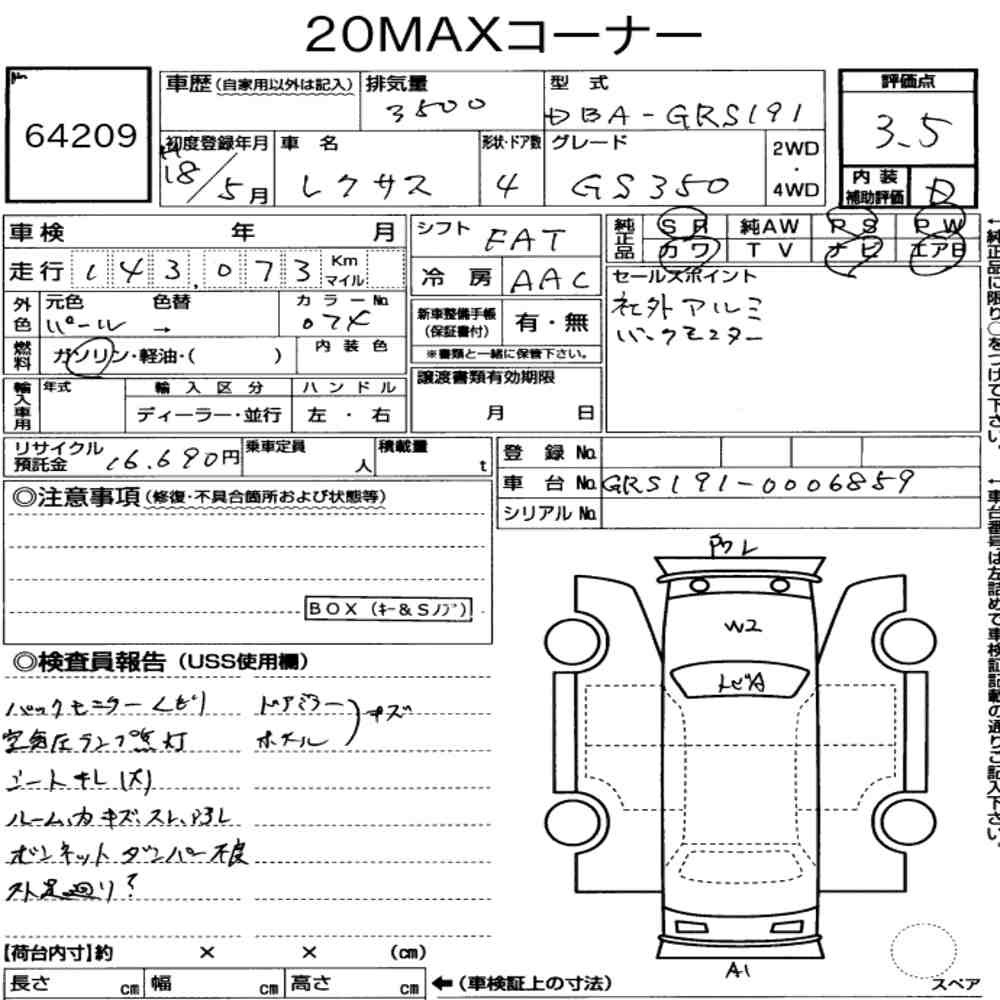 20MAXコーナー
No. 64209
車歴 (自家用以外は記入) 排気量 3500 型式 DBA-GRS191
初度登録年月 H18/5月 車名 レクサス 形状・ドア数 4 グレード GS350 2WD・4WD
評価点 3.5
内装補助評価 D
車検 年 月
走行 143,073 Km マイル
外色 元色 パール 色替 → カラーNo. 074
燃料 ガソリン・軽油・( ) 内装色
輸入車用 年式 輸入区分 ディーラー・並行 ハンドル 左・右
シフト FAT
冷房 AAC
新車整備手帳 (保証書付) 有・無
※書類と一緒に保管下さい。
譲渡書類有効期限
月 日
純正品 SR 純AW PS PW
カワ TV ナビ エアB
セールスポイント
社外アルミ
バックモニター
←純正品に限り○をつけて下さい。
リサイクル預託金 16.690円 乗車定員 人 積載量 t
登録No.
車台No. GRS191-0006859
シリアルNo.
←車台番号は左詰めで車検証記載の通りご記入下さい。
◎注意事項 (修復・不具合箇所および状態等)
BOX (キー&Sノブ)
◎検査員報告 (USS使用欄)
バックモニターくもり ドアミラー
空気圧ランプ点灯 ホイール ) キズ
シートキレ(大)
ルーム内キズ、スレ、
ボンネットダンパー不良
ストア足廻り?
W2
トビA
A1
【荷台内寸】約 × × (cm)
長さ cm 幅 cm 高さ cm
←(車検証上の寸法)
スペア